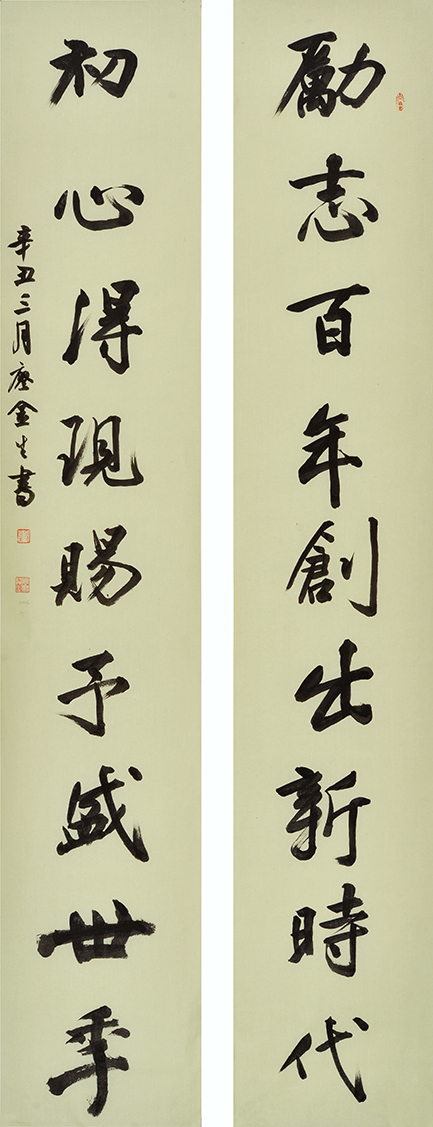 勵志百年創出新時代
初心得現賜予盛世季
辛丑三月金生書